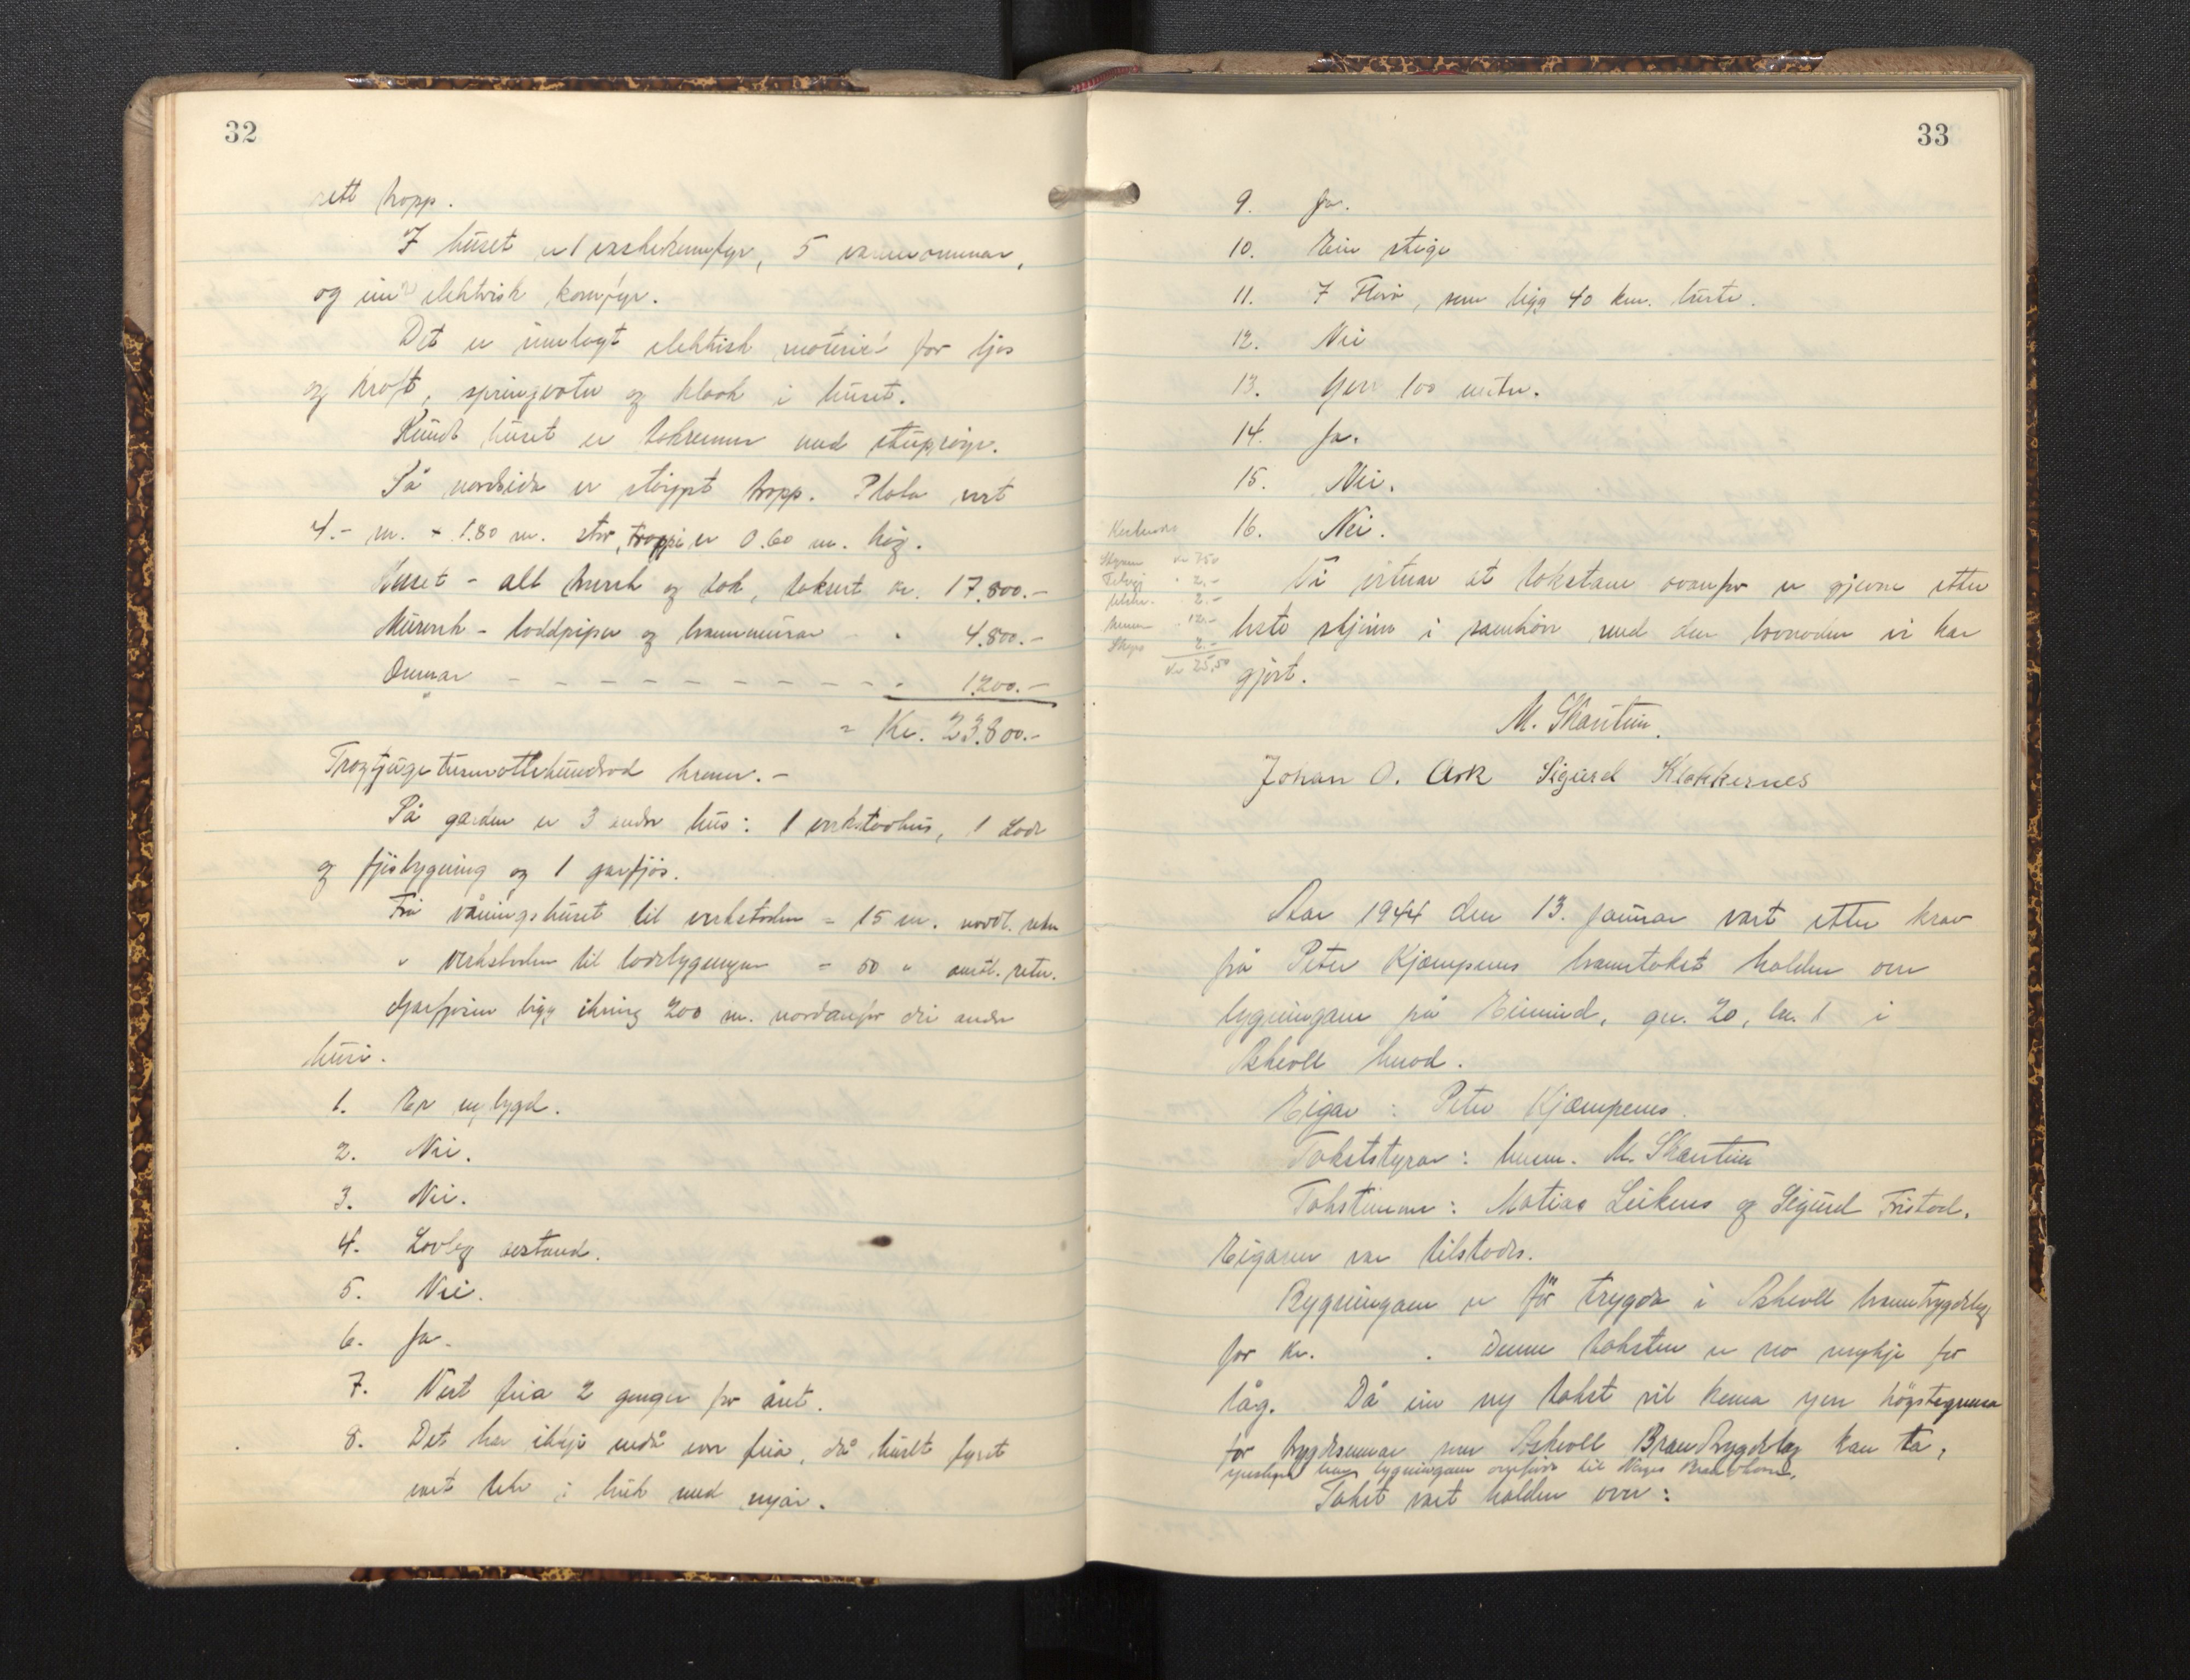 32
sett tropp.
I huset er 1 vaskekomfyr, 5 varmeomnar,
og ein elektrisk komfyr.
Det er innlagt elektrisk for ljos
og kraft, springvatn og kloak i huset.
Rundt huset er takrenner med
På nordsida er stöypt tropp. Plata
4.- m. x 1.80 m. stor, troppi er 0.60 m. hög.
Huset - alt treverk og tak, taksert kr. 17.800.-
Murverk - loddpiper og brannmurar " 4.800.-
Omnar - - - - - - - - - - - " 1.200.-
= Kr. 23.800.-
Trogtjugetusenottehundrad kroner.-
På garden er 3 andre hus: 1 verkstadhus, 1 Lade
og fjösbygning og 1 garfjös.
Frå våningshuset til verkstaden = 15 m. nordl. retn
" verkstaden til ladebygningen = 50 " austl. retn.
Garfjösen ligg ikring 200 m. nordanfor dei andre
husi.
1. Er nybygd.
2. Nei.
3. Nei.
4. Lovleg avstand.
5. Nei.
6. Ja.
7. Vert feia 2 gonger for året.
8. Det har ikkje endå vore feia, då huset fyrst
vart teke i bruk med nyår.
33
9. Ja.
10. Ein stige
11. I Florö, som ligg 40 km. burte.
12. Nei
13. Yver 100 meter.
14. Ja.
15. Nei.
16. Nei.
Kostnad
Styrar kr 7,50
" 2,-
" 2,-
" 12,-
Skyss 2,-
Kr 25,50
Vi vitnar at takstane ovanfor er gjevne etter
beste skjönn i samhöve med den lovnaden vi har
gjort.
M. Skantun.
Johan O. Ask Sigurd Klokkernes
Aar 1944 den 13. januar vart etter krav
frå Peter Kjempenes branntakst halden over
bygningane på Eimind, gn. 20, bn. 1 i
Askvoll herad.
Eigar: Peter Kjempenes.
Takststyrar: lensm. M. Skantun
Takstmenn: Matias Leiknes og Sigurd Fristad.
Eigaren var tilstades.
Bygningane er för trygda i Askvoll branntrygdelag
for kr. . Denne taksten er no mykje for
låg. Då ein ny takst vil koma yver högstegrensa
for trygdsummar som Askvoll Branntrygdelag kan ta,
bygningane overförde til Norges Brandkasse.
Takst vart halden over: